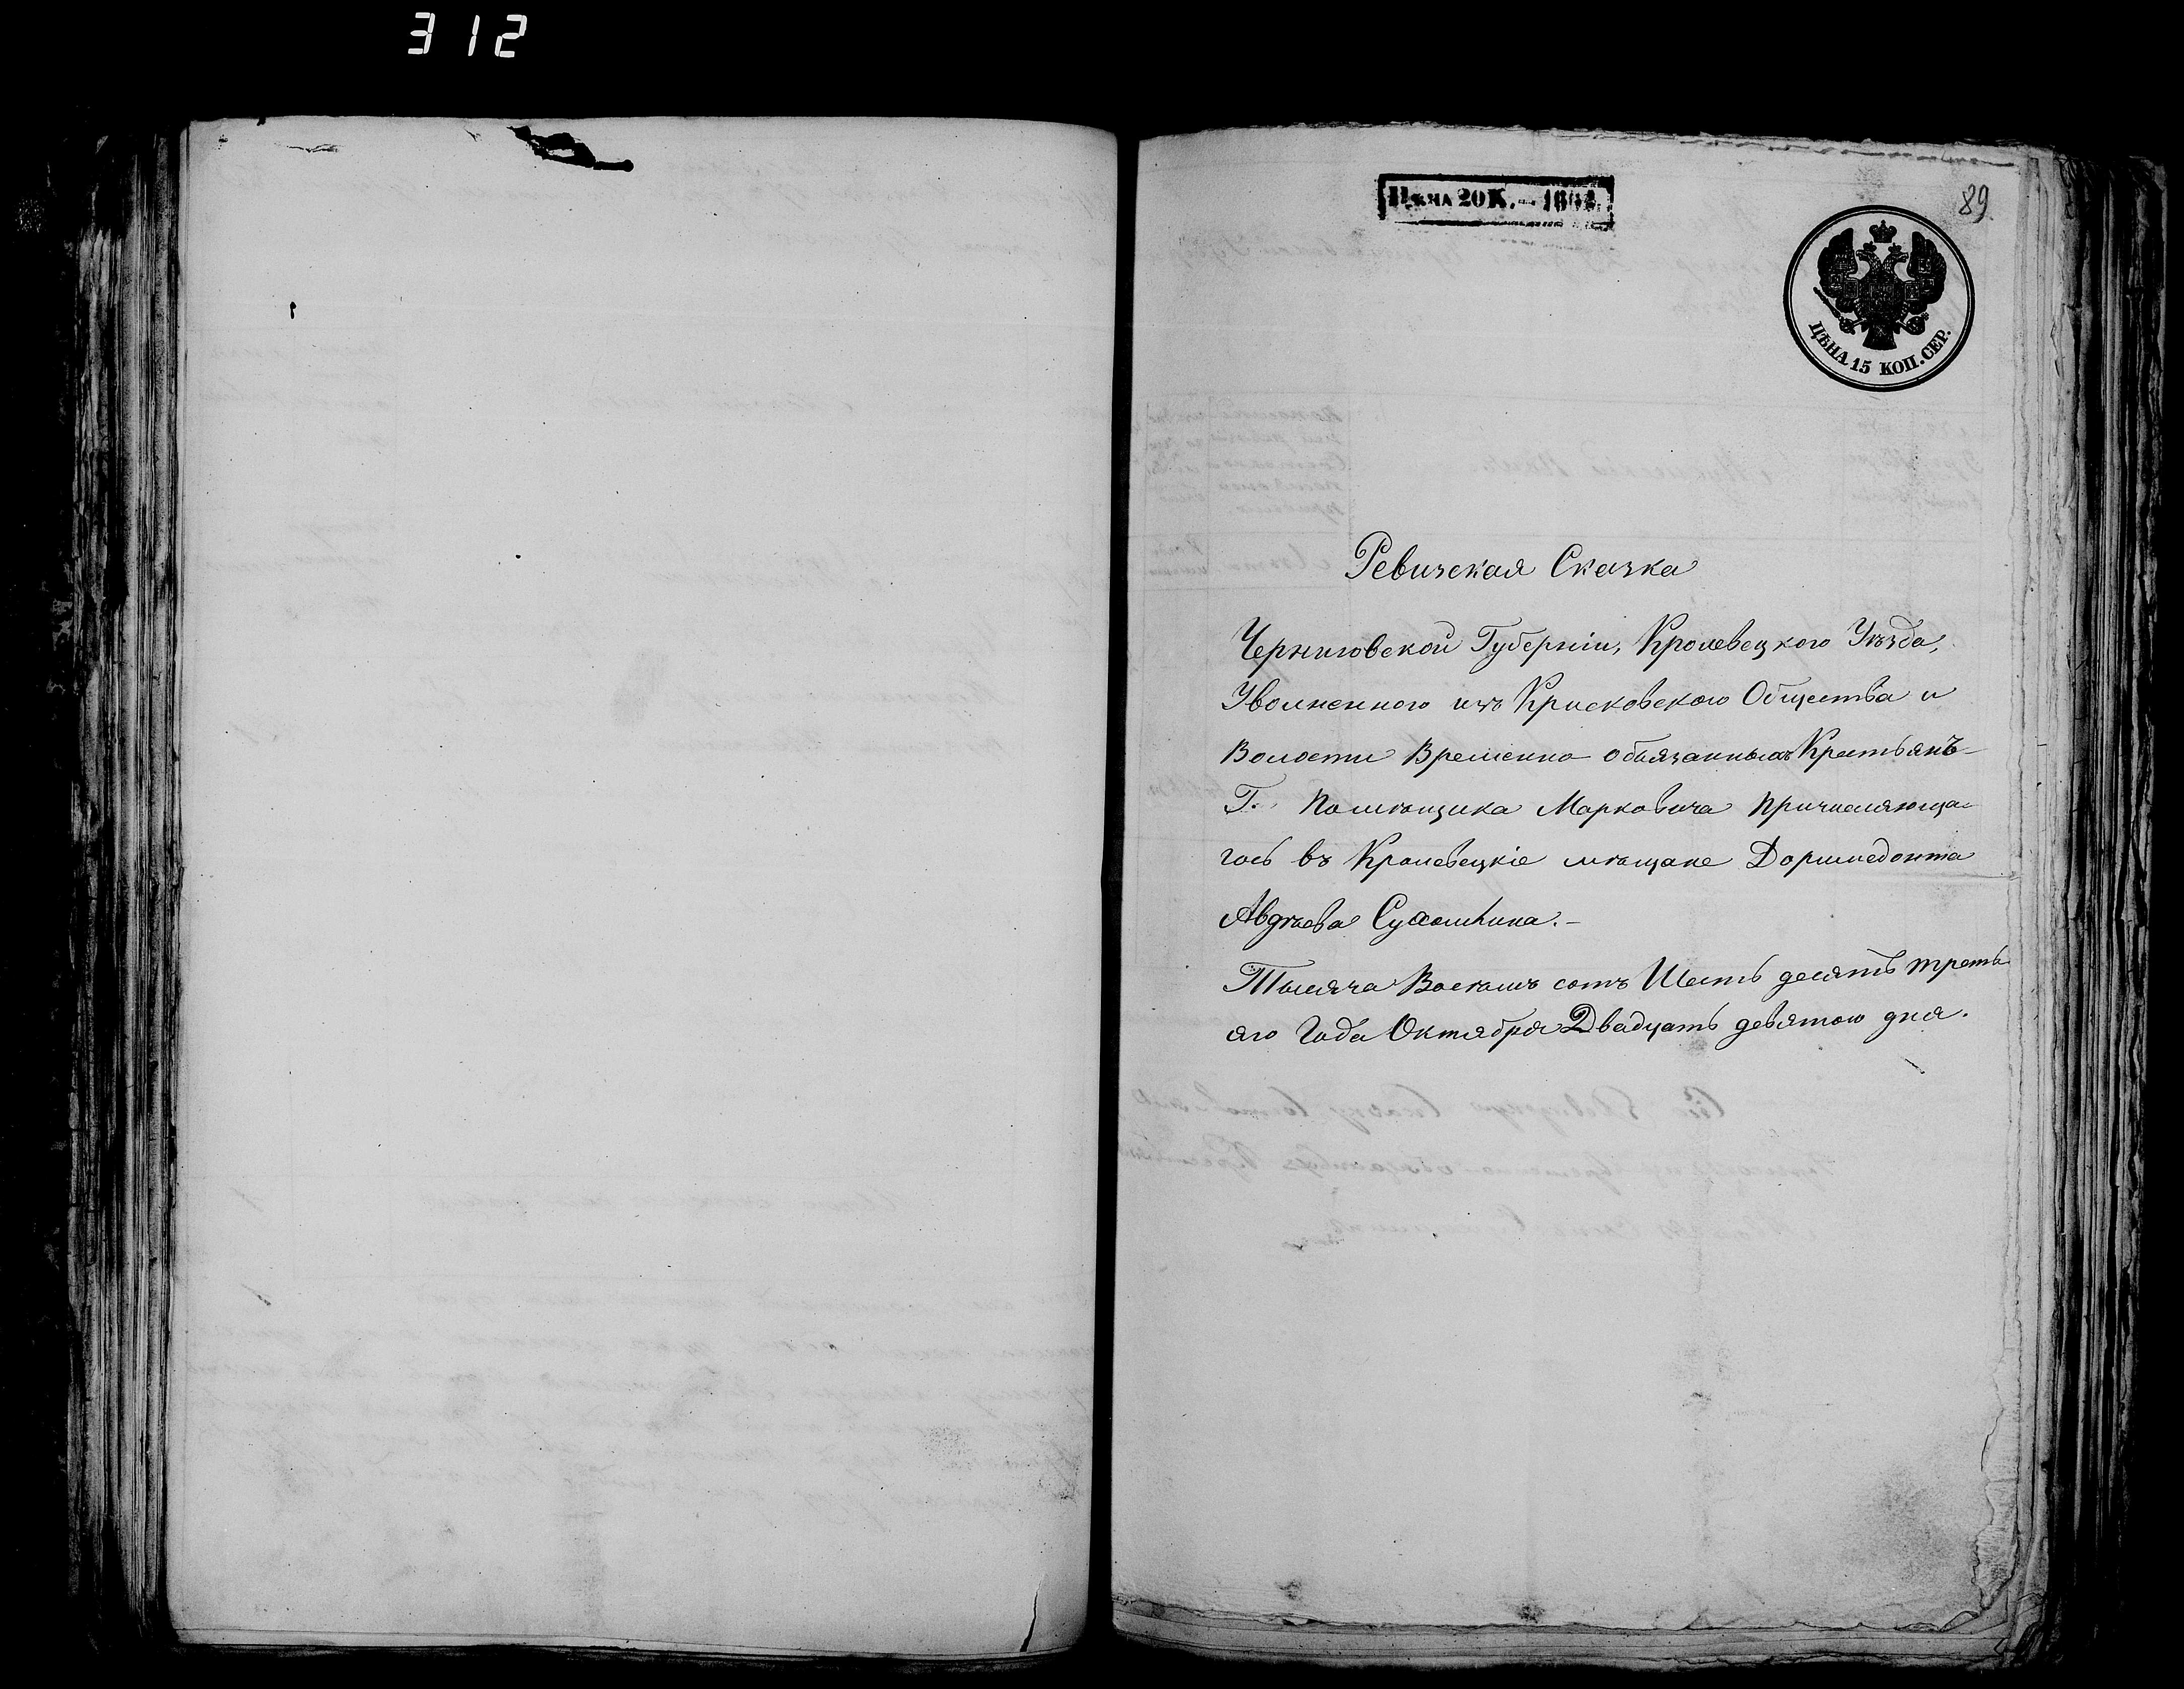 312
Цѣна 20 К. — 186
89
ЦѢНА 15 КОП. СЕР.
Ревизская Сказка
Черниговской Губерніи, Кролевецкого Уѣзда,
Уволненного изъ Крисковского Общества и
Волости Временно обязанныхъ Крестьянъ
Г. Помѣщика Марковича причисляюща
гось въ Кролевецкіе мѣщане Доримедонта
Авдѣева
Тысяча Восемъ сотъ Шесть десятъ треть
яго Года Октября Двадцать девятого дня.